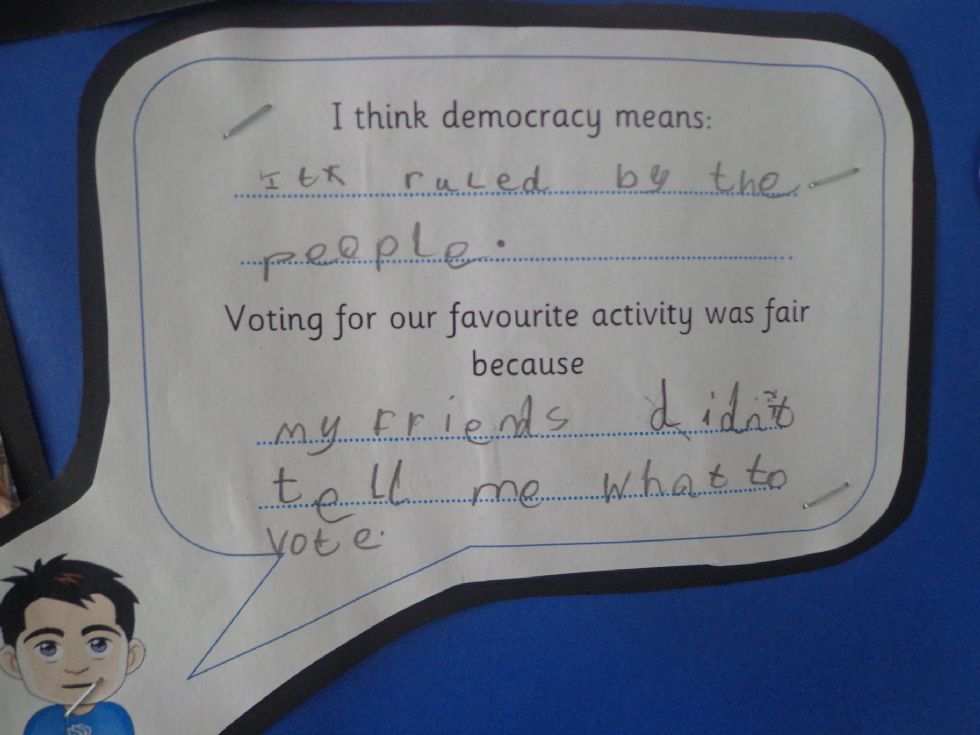 I think democracy means:
Its ruled by the
people.
Voting for our favourite activity was fair
because
my friends didn't
tell me what to
vote.